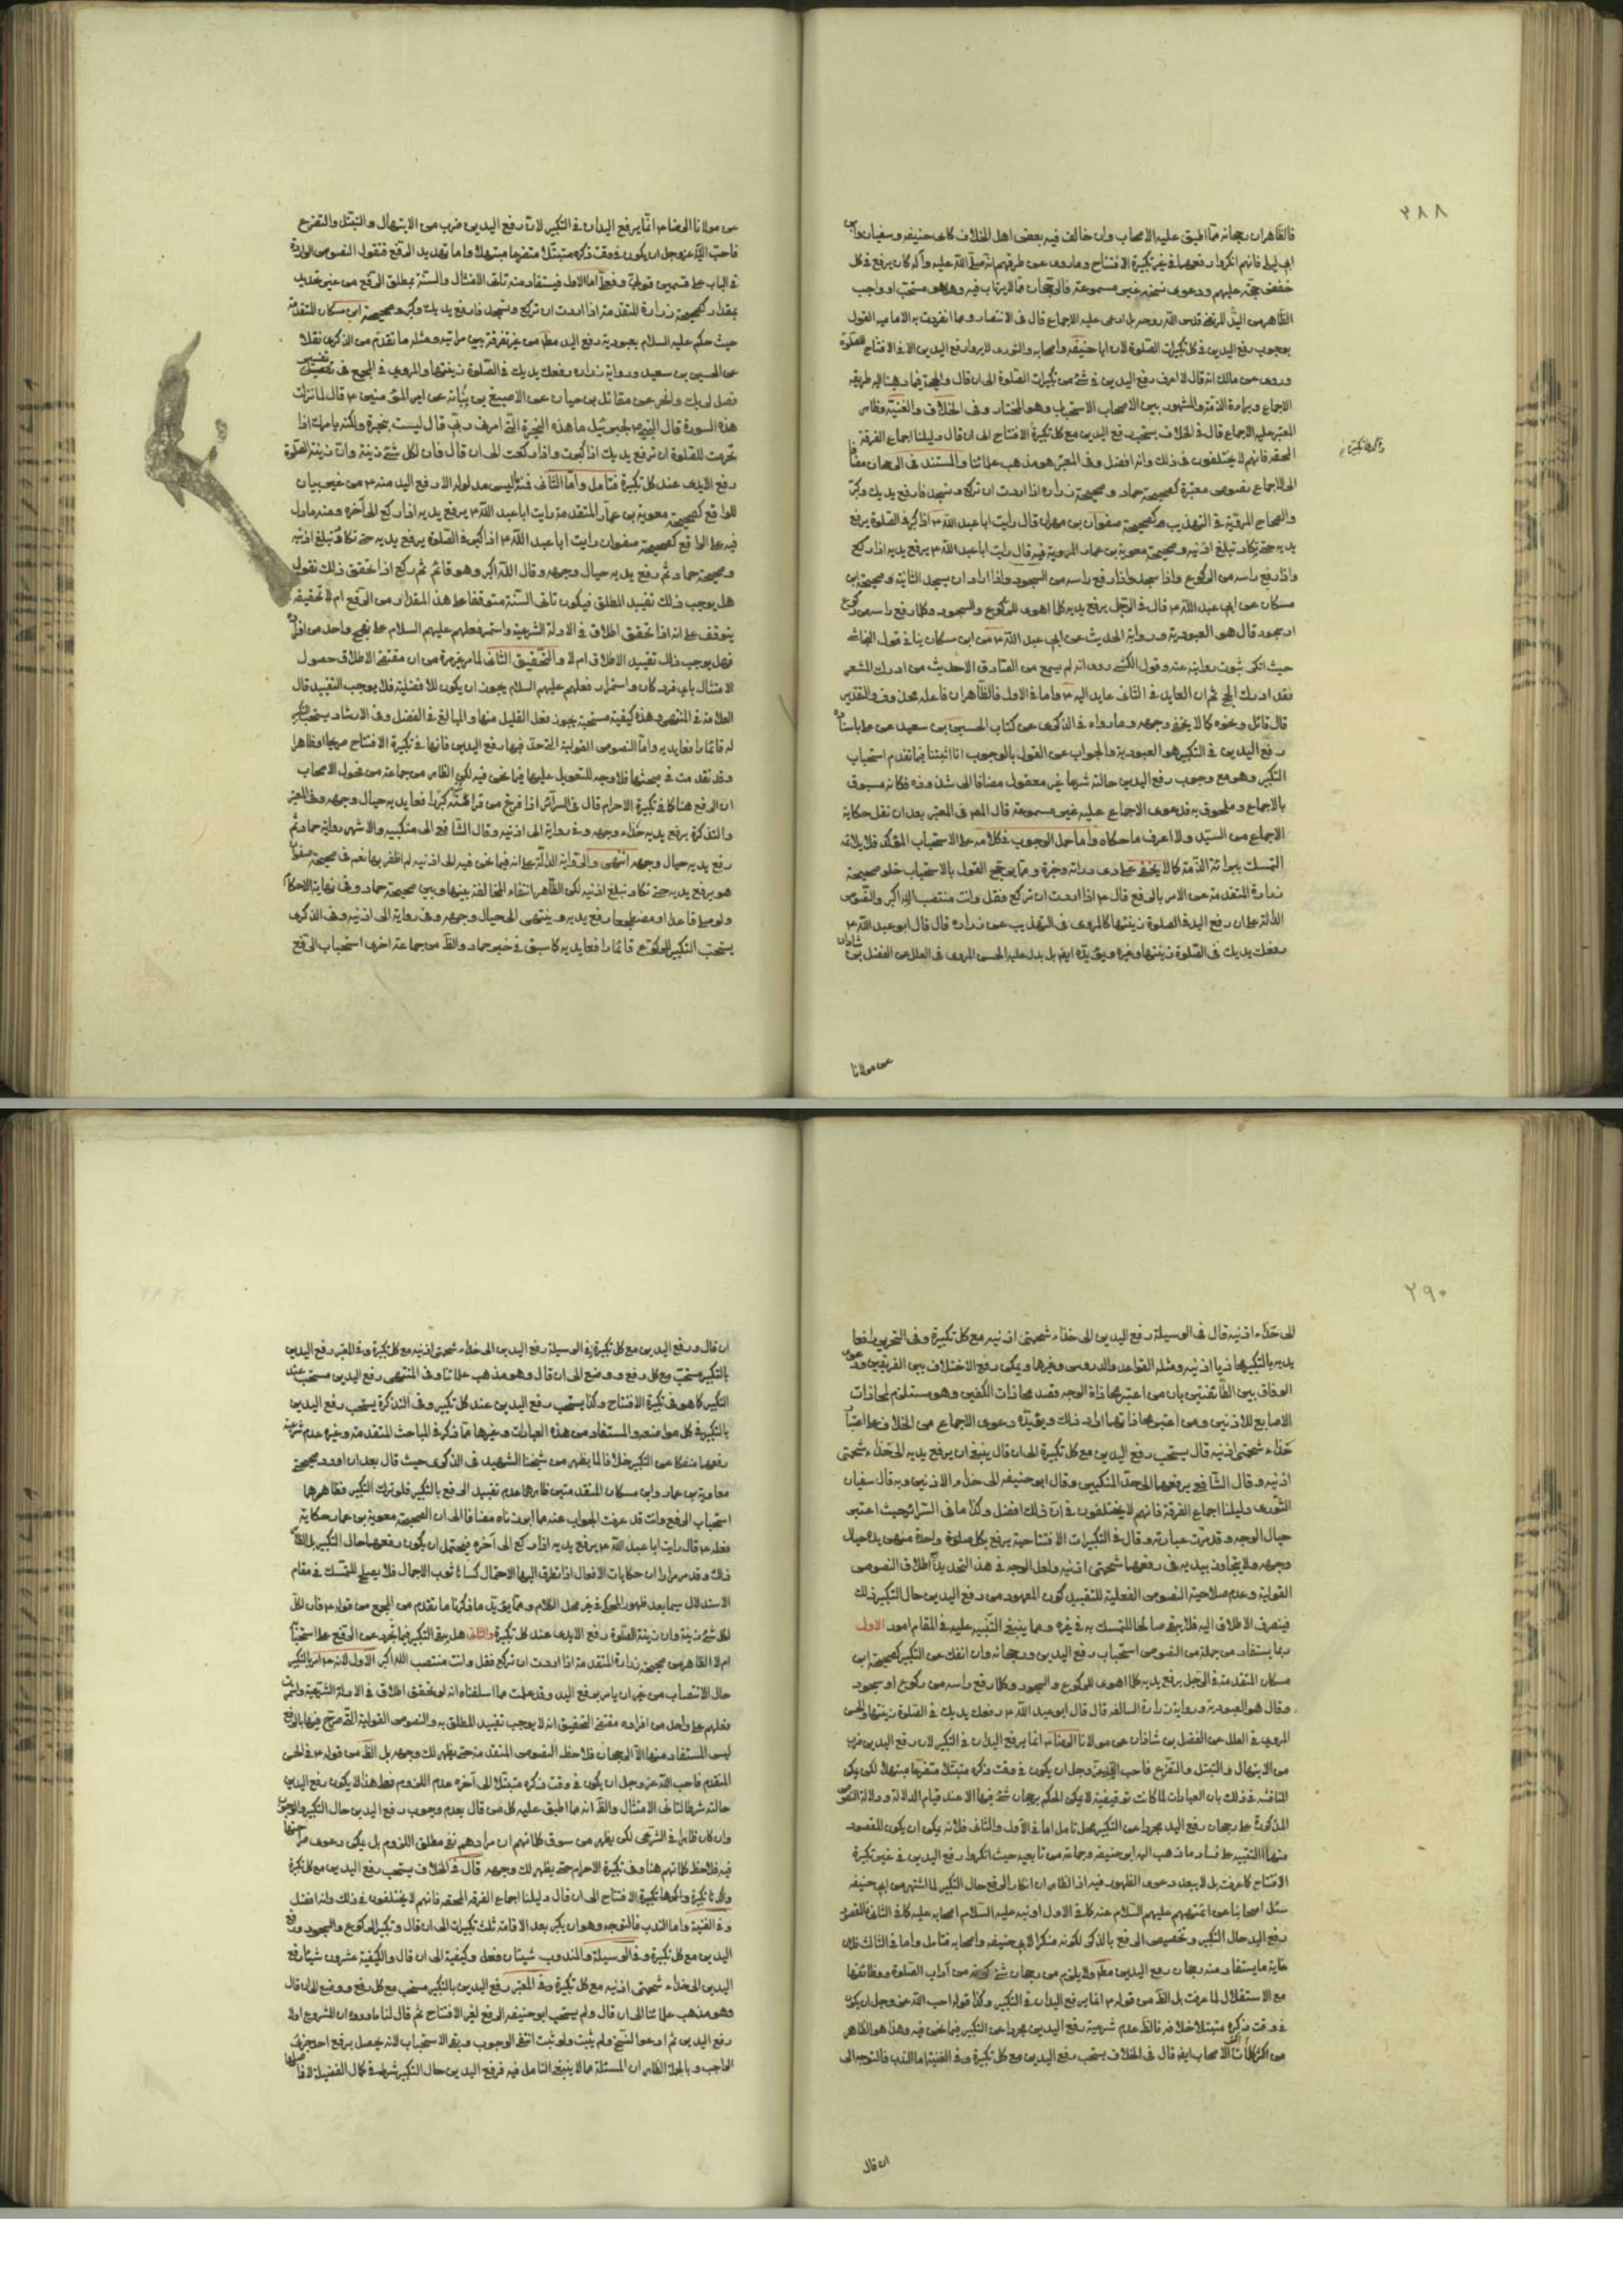 ٢٨٨
فالظاهران رجحانه مما اطبق عليه الاصحاب وان خالف فيه بعض اهل الخلاف كابى حنيفه وسفيان وابن
ابى ليلى فانهم انكروا رفعهما فى غير تكبيرة الافتتاح وما روى عن طرقهم انه صلى الله عليه وآله كان يرفع فى كل
خفض حجة عليهم ودعوى نسخه غير مسموعة فالرجحان مما لا يرتاب فيه وهل هو مستحب او واجب
الظاهر من السيد المرتضى قدس الله روحه بل ادعى عليه الاجماع قال فى الانتصار ومما انفردت به الاماميه القول
بوجوب رفع اليدين فى كل تكبيرات الصلوة لان ابا حنيفه واصحابه والثورى لا يروا رفع اليدين الا فى الافتتاح للصلوة
وروى عن مالك انه قال لا اعرف رفع اليدين فى شئ من تكبيرات الصلوة الى ان قال والحجة فيما ذهبنا اليه طريقه
الاجماع وبراءة الذمة والمشهور بين الاصحاب الاستحباب وهو المختار وفى الخلاف والغنية وظاهر
المعتبر عليه الاجماع قال فى الخلاف يستحب رفع اليدين مع كل تكبيرة الافتتاح الى ان قال دليلنا اجماع الفرقة
المحقه فانهم لا يختلفون فى ذلك وانه افضل وفى المعتبر هو مذهب علمائنا والمستند فى الرجحان مضافا
الى الاجماع نصوص معتبرة كصحيحة حماد وصحيحة زرارة اذا اردت ان تركع وتسجد فارفع يديك وكبر
والصحاح المروية فى التهذيب كصحيحة صفوان بن مهران قال رايت ابا عبد الله ٤ اذا كبر فى الصلوة يرفع
يديه حتى تكاد تبلغ اذنيه وصحيحة معوية بن عمار المروية فيه قال رايت ابا عبد الله ٤ يرفع يديه اذا ركع
واذا رفع راسه من الركوع واذا سجد واذا رفع راسه من السجود واذا اراد ان يسجد الثانية وصحيحة ابن
مسكان عن ابى عبد الله ٤ قال فى الرجل يرفع يديه كلما اهوى للركوع والسجود وكلما رفع راسه من ركوع
او سجود قال هو العبودية ورواية الحديث عن ابى عبد الله ٤ من ابن مسكان ينافى قول النجاشى
حيث انكر ثبوت روايته عنه وقول الكشى روى انه لم يسمع من الصادق الا حديث من ادرك المشعر
فقد ادرك الحج ثم ان العايد فى الثانى عايد اليه ٤ واما فى الاول فالظاهران فاعله محذوف والتقدير
قال قائل ونحوه كما لا يخفى وجهه وما رواه فى الذكرى عن كتاب الحسين بن سعيد عن على باسناده
رفع اليدين فى التكبير هو العبودية والجواب عن القول بالوجوب انا اثبتنا فيما تقدم استحباب
التكبير وهو مع وجوب رفع اليدين حالته شرعا غير معقول مضافا الى شذوذه فكانه مسبوق
بالاجماع وملحوق به فدعوى الاجماع عليه غير مسموعة قال المص فى المعتبر بعد ان نقل حكاية
الاجماع من السيد ولا اعرف ما حكاه واما حمل الوجوب فكلامه على الاستحباب المؤكد فلا يلائمه
التمسك ببرائة الذمة كما لا يخفى على ذى دراية وخبرة ومما يرجح القول بالاستحباب خلو صحيحة
زرارة المتقدمة عن الامر بالرفع قال ٤ اذا اردت ان تركع فقل وانت منتصب الله اكبر والنصوص
الدالة على ان رفع اليد فى الصلوة زينتها كالمروى فى التهذيب عن زرارة قال قال ابو عبد الله ٤
رفعك يديك فى الصلوة زينتها وغيره ويؤيده ايضا بل يدل عليه الحسن المروى فى العلل عن الفضل بن شاذان
عن مولانا
عن مولانا الرضا ٤ انما يرفع اليدان فى التكبير لان رفع اليدين ضرب من الابتهال والتبتل والتضرع
فاحب الله عز وجل ان يكون فى وقت ذكره متبتلا متضرعا مبتهلا واما تحديد الرفع فنقول النصوص الواردة
فى الباب على قسمين قولية وفعلية اما الاول فيستفاد منه تادى الامتثال والسنة بمطلق الرفع من غير تحديد
بمقدار كصحيحة زرارة المتقدمة اذا اردت ان تركع وتسجد فارفع يديك وكبر وصحيحة ابن مسكان المتقدمة
حيث حكم عليه السلام بعبودية رفع اليد مطلقا من غير تفرقة بين مراتبه ومثله ما تقدم من الذكرى نقلا
عن الحسين بن سعيد ورواية زرارة رفعك يديك فى الصلوة زينتها والمروى فى المجمع فى تفسير
فصل لربك وانحر عن مقاتل بن حيان عن الاصبغ بن نباتة عن امير المؤمنين ٤ قال لما نزلت
هذه السورة قال النبى لجبرئيل ما هذه النحيرة التى امرنى ربى قال ليست بنحيرة ولكنه يامرك اذا
تحرمت للصلوة ان ترفع يديك اذا كبرت واذا ركعت الى ان قال فان لكل شئ زينة وان زينة الصلوة
رفع الايدى عند كل تكبيرة فتامل واما الثانى فمنه ما ليس مدلوله الا رفع اليد منه ٤ من غير بيان
للواقع كصحيحة معوية بن عمار المتقدمة رايت ابا عبد الله ٤ يرفع يديه اذا ركع الى آخره ومنه ما دل
فيه على الواقع كصحيحة صفوان رايت ابا عبد الله ٤ اذا كبر فى الصلوة يرفع يديه حتى تكاد تبلغ اذنيه
وصحيحة حماد ثم رفع يديه حيال وجهه وقال الله اكبر وهو قائم ثم ركع اذا تحقق ذلك نقول
هل يوجب ذلك تقييد المطلق فيكون تادى السنة متوقفا على هذا المقدار من الرفع ام لا تحقيقه
يتوقف على انه اذا تحقق اطلاق فى الادلة الشرعية واستمر فعلهم عليهم السلام على نهج واحد من افراده
فهل يوجب ذلك تقييد الاطلاق ام لا والتحقيق الثانى لما مر غير مرة من ان مقتضى الاطلاق حصول
الامتثال باى فرد كان واستمرار فعلهم عليهم السلام يجوز ان يكون للافضلية فلا يوجب التقييد قال
العلامة فى المنتهى وهذه كيفية مستحبة يجوز فعل القليل منها والمبالغ فى الفضل وفى الارشاد يستحب التكبير
له قائما رافعا يديه واما النصوص القولية التى حد فيها رفع اليدين فانها فى تكبيرة الافتتاح صريحا او ظاهرا
وقد تقدمت فى مبحثها فلا وجه للتعويل عليها فيما نحن فيه لكن الظاهر من جماعة من فحول الاصحاب
ان الرفع هنا كما فى تكبيرة الاحرام قال فى السرائر اذا فرغ من قرائته كبر رافعا يديه حيال وجهه وفى المعتبر
والتذكرة يرفع يديه حذاء وجهه وفى رواية الى اذنيه وقال الشافعى الى منكبيه والاشهر رواية حماد ثم
رفع يديه حيال وجهه انتهى والرواية الدالة على انه فيما نحن فيه الى اذنيه لم اظفر بها نعم فى صحيحة صفوان
هو يرفع يديه حتى تكاد تبلغ اذنيه لكن الظاهر انتفاء المخالفة بينها وبين صحيحة حماد وفى نهاية الاحكام
ولو صلى قاعدا او مضطجعا رفع يديه وينتهى الى حيال وجهه وفى رواية الى اذنيه وفى الذكرى
يستحب التكبير للركوع قائما رافعا يديه كما سبق فى خبر حماد والظ من جماعة اخرى استحباب الرفع
٢٩٠
الى حذاء اذنيه قال فى الوسيلة رفع اليدين الى حذاء شحمتى اذنيه مع كل تكبيرة وفى التحرير رافعا
يديه بالتكبير محاذيا اذنيه ومثله القواعد والدروس وغيرها ويمكن رفع الاختلاف بين الفريقين ودعوى
الوفاق بين الطائفتين بان من اعتبر محاذاة الوجه قصد محاذات الكفين وهو مستلزم لمحاذات
الاصابع للاذنين ومن اعتبر محاذاتهما اراد ذلك ويؤيده دعوى الاجماع من الخلاف على اعتبار
حذاء شحمتى اذنيه قال يستحب رفع اليدين مع كل تكبيرة الى ان قال ينبغى ان يرفع يديه الى حذاء شحمتى
اذنيه وقال الشافعى يرفعهما الى حذاء المنكبين وقال ابو حنيفه الى حذاء الاذنين وبه قال سفيان
الثورى دليلنا اجماع الفرقة فانهم لا يختلفون فى ان ذلك افضل وكذا ما فى السرائر حيث اعتبر
حيال الوجه وقد مرت عبارته وقال فى التكبيرات الافتتاحية يرفع بكل صلوة واحدة منهن يده حيال
وجهه ولا يتجاوز بيديه فى رفعهما شحمتى اذنيه ولعل الوجه فى هذا التحديد اطلاق النصوص
القولية وعدم صلاحية النصوص الفعلية للتقييد كون المعهود من رفع اليدين حال التكبير ذلك
فينصرف الاطلاق اليه فلا يبقى صالحا للتمسك به فى غيره ومما ينبغى التنبيه عليه فى المقام امور الاول
ربما يستفاد من جملة من النصوص استحباب رفع اليدين ورجحانه وان انفك عن التكبير كصحيحة ابن
مسكان المتقدمة فى الرجل يرفع يديه كلما اهوى للركوع والسجود وكلما رفع راسه من ركوع او سجود
وقال هو العبودية ورواية زرارة السالفه قال قال ابو عبد الله ٤ رفعك يديك فى الصلوة زينتها والحسن
المروى فى العلل عن الفضل بن شاذان عن مولانا الرضا ٤ انما يرفع اليدان فى التكبير لان رفع اليدين ضرب
من الابتهال والتبتل والتضرع فاحب الله عز وجل ان يكون فى وقت ذكره متبتلا متضرعا مبتهلا لكن يمكن
المناقشه فى ذلك بان العبادات لما كانت توقيفية لا يمكن الحكم برجحان شئ فيها الا عند قيام الدلالة ودلالة النصوص
المذكورة على رجحان رفع اليد مجردا عن التكبير محل تامل اما فى الاول والثانى فلانه يمكن ان يكون المقصود
منهما التنبيه على فساد ما ذهب اليه ابو حنيفه وجماعة من تابعيه حيث انكروا رفع اليدين فى غير تكبيرة
الافتتاح كما عرفت بل لا يبعد دعوى الظهور فيه اذ الظاهر ان انكار الرفع حال التكبير لما اشتهر من ابى حنيفه
سئل اصحابنا عن ائمتهم عليهم السلام عنه كما فى الاول او نبه عليه السلام اصحابه عليه كما فى الثانى فالمقصود
رفع اليد حال التكبير وتخصيص الرفع بالذكر لكونه منكرا لابى حنيفه واصحابه فتامل واما فى الثالث فلان
غاية ما يستفاد منه رجحان رفع اليدين مطلقا ولا يلزم من رجحان شئ كونه من آداب الصلوة ووظائفها
مع الاستقلال لما عرفت بل الظ من قوله ٤ انما يرفع اليدان فى التكبير وكذا قوله احب الله عز وجل ان يكون
فى وقت ذكره متبتلا خلافه فالظ عدم شرعية رفع اليدين مجردا عن التكبير فيما نحن فيه وهذا هو الظاهر
من اكثر كلمات الاصحاب ايضا قال فى الخلاف يستحب رفع اليدين مع كل تكبيرة وفى الغنية اما الندب فالتوجه الى
ان قال
ان قال ورفع اليدين مع كل تكبيرة وفى الوسيلة رفع اليدين الى حذاء شحمتى اذنيه مع كل تكبيرة وفى المعتبر رفع اليدين
بالتكبير مستحب مع كل رفع ووضع الى ان قال وهو مذهب علمائنا وفى المنتهى رفع اليدين مستحب عند
التكبير كما هو فى تكبيرة الافتتاح وكذا يستحب رفع اليدين عند كل تكبير وفى التذكرة يستحب رفع اليدين
بالتكبير فى كل مواضعه والمستفاد من هذه العبارات وغيرها مما ذكر فى المباحث المتقدمة وغيره عدم شرعية
رفعهما منفكا عن التكبير خلافا لما يظهر من شيخنا الشهيد فى الذكرى حيث قال بعد ان اورد صحيحة
معاوية بن عمار وابن مسكان المتقدمتين ظاهرهما عدم تقييد الرفع بالتكبير فلو ترك التكبير فظاهرهما
استحباب الرفع وانت قد عرفت الجواب عنه بما ابرزناه مضافا الى ان الصحيحة معوية بن عمار حكاية
فعله ٤ قال رايت ابا عبد الله ٤ يرفع يديه اذا ركع الى آخره فيحتمل ان يكون رفعهما حال التكبير بل الظ
ذلك وقد مر مرارا ان حكايات الافعال اذا تطرق اليها الاحتمال كساها ثوب الاجمال فلا يصلح للتمسك فى مقام
الاستدلال سيما بعد ظهور المحكى فى غير محل الكلام ومما يؤيد ما ذكرنا ما تقدم من المجمع من قوله ٤ فان لكل
لكل شئ زينة وان زينة الصلوة رفع الايدى عند كل تكبيرة والثانى هل يبقى التكبير فيما تجرد عن الرفع على استحبابه
ام لا الظاهر من صحيحة زرارة المتقدمة اذا اردت ان تركع فقل وانت منتصب الله اكبر الاول لانه ٤ امر بالتكبير
حال الانتصاب من غير ان يامر برفع اليد وقد علمت مما اسلفناه انه لو تحقق اطلاق فى الادلة الشرعية واستمرت
فعلهم على واحد من افراده مقتضى التحقيق انه لا يوجب تقييد المطلق به والنصوص القولية التى صرح فيها بالرفع
ليس المستفاد منها الا الرجحان فلاحظ النصوص المتقدمة حتى يظهر لك وجهه بل الظ من قوله ٤ فى الحسن
المتقدم فاحب الله عز وجل ان يكون فى وقت ذكره متبتلا الى آخره عدم اللزوم فعلى هذا لا يكون رفع اليدين
حالته شرطا لتادى الامتثال والظ انه مما اطبق عليه كل من قال بعدم وجوب رفع اليدين حال التكبير والوجوب
وان كان ظاهرا فى الشرعى لكن يظهر من سوق كلماتهم ان مرادهم نفى مطلق اللزوم بل يمكن دعوى صراحتها
فيه فلاحظ كلماتهم هنا وفى تكبيرة الاحرام حتى يظهر لك وجهه قال فى الخلاف يستحب رفع اليدين مع كل تكبيرة
واكدها تكبيرة الافتتاح الى ان قال دليلنا اجماع الفرقه المحقه فانهم لا يختلفون فى ذلك وانه افضل
وفى الغنية واما الندب فالتوجه وهو ان يكبر بعد الاقامة ثلث تكبيرات الى ان قال وتكبير الركوع والسجود ورفع
اليدين مع كل تكبيرة وفى الوسيلة والمندوب شيئان فعل وكيفية الى ان قال والكيفية عشرون شيئا رفع
اليدين الى حذاء شحمتى اذنيه مع كل تكبيرة وفى المعتبر رفع اليدين بالتكبير مستحب مع كل رفع ووضع الى ان قال
وهو مذهب علمائنا الى ان قال ولم يستحب ابو حنيفه الرفع لغير الافتتاح ثم قال لنا ما رووه ان المشروع اولا
رفع اليدين ثم ادعوا النسخ ولم يثبت ولو ثبت انتفى الوجوب وبقى الاستحباب لانه يحصل برفع احد جزئى
الواجب وبالجملة الظاهر ان المسئلة مما لا ينبغى التامل فيه فرفع اليدين حال التكبير شرط فى كمال الفضيلة لا فى اصلها